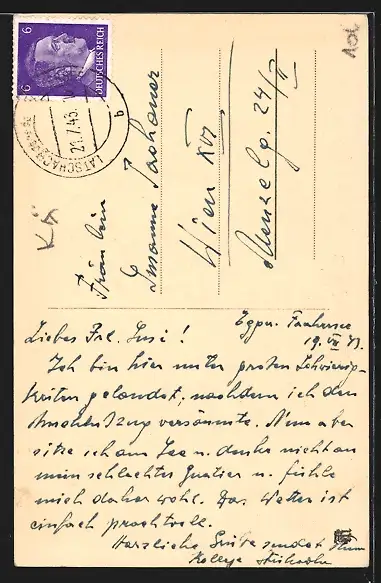 101
6
DEUTSCHES REICH
6
LATSCHACH
21.7.43
b
Kä
Fräulein
Susanne
Wien XVI
24/II
Egger Faakersee
19. VII 43.
Liebes Frl. Susi!
Ich bin hier unter großen Schwierig-
keiten gelandet, nachdem ich den
Anschlußzug versäumte. Nun aber
sitze ich am See u. denke nicht an
mein schlechtes Quatier u. fühle
mich daher wohl. Das Wetter ist
einfach prachtvoll.
Herzliche Grüße sendet Ihnen
Kollege